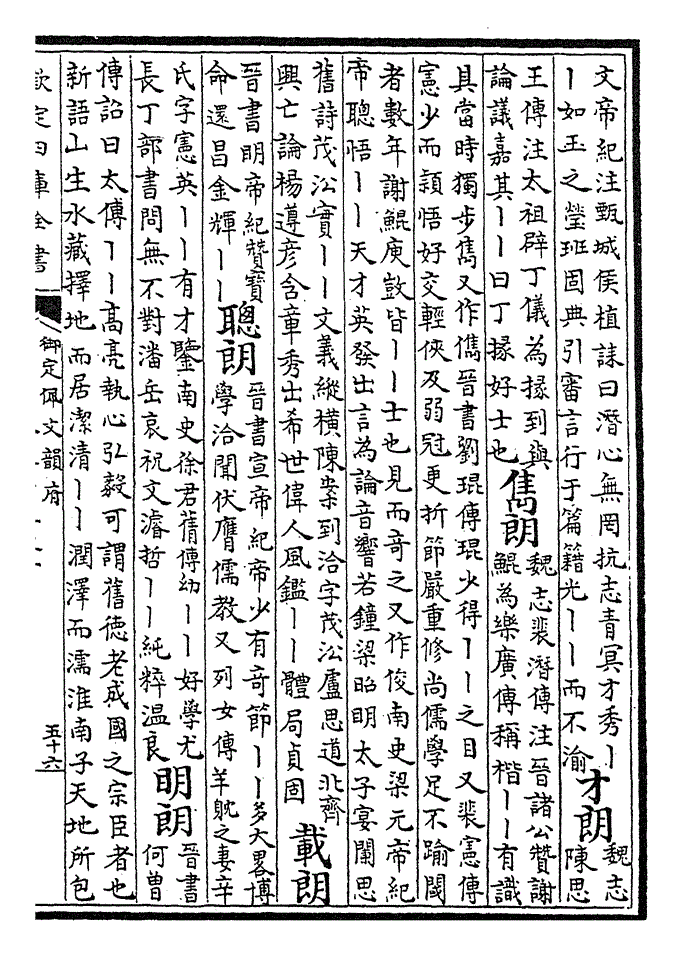 文帝紀注甄城侯植誄曰潛心無罔抗志青冥才秀丨
丨如玉之瑩班固典引審言行于篇籍光丨丨而不渝
才朗
魏志
陳思
王傳注太祖辟丁儀為掾到與
論議嘉其丨丨曰丁掾好士也
雋朗
魏志裴潛傳注晉諸公贊謝
鯤為樂廣傳稱楷丨丨有識
具當時獨步雋又作儁晉書劉琨傳琨少得丨丨之目又裴憲傳
憲少而頴悟好交輕俠及弱冠更折節嚴重修尚儒學足不踰閾
者數年謝鯤庾敳皆丨丨士也見而奇之又作俊南史梁元帝紀
帝聰悟丨丨天才英發出言為論音響若鐘梁昭明太子宴闌思
舊詩茂沿實丨丨文義縱橫陳案到洽字茂沿盧思道北齊
興亡論楊遵彦含章秀出希世偉人風鑑丨丨體局貞固
載朗
晉書明帝紀贊寶
命還昌金輝丨丨
聰朗
晉書宣帝紀帝少有奇節丨丨多大畧博
學洽聞伏膺儒教又列女傳羊耽之妻辛
氏字憲英丨丨有才鑒南史徐君蒨傳幼丨丨好學尤
長丁部書問無不對潘岳哀祝文濬哲丨丨純粹温良
明朗
晉書
何曾
傳詔曰太傅丨丨高亮執心弘毅可謂舊德老成國之宗臣者也
新語山生水藏擇地而居潔清丨丨潤澤而濡淮南子天地所包
欽定四庫全書
御定佩文韻府
五十六